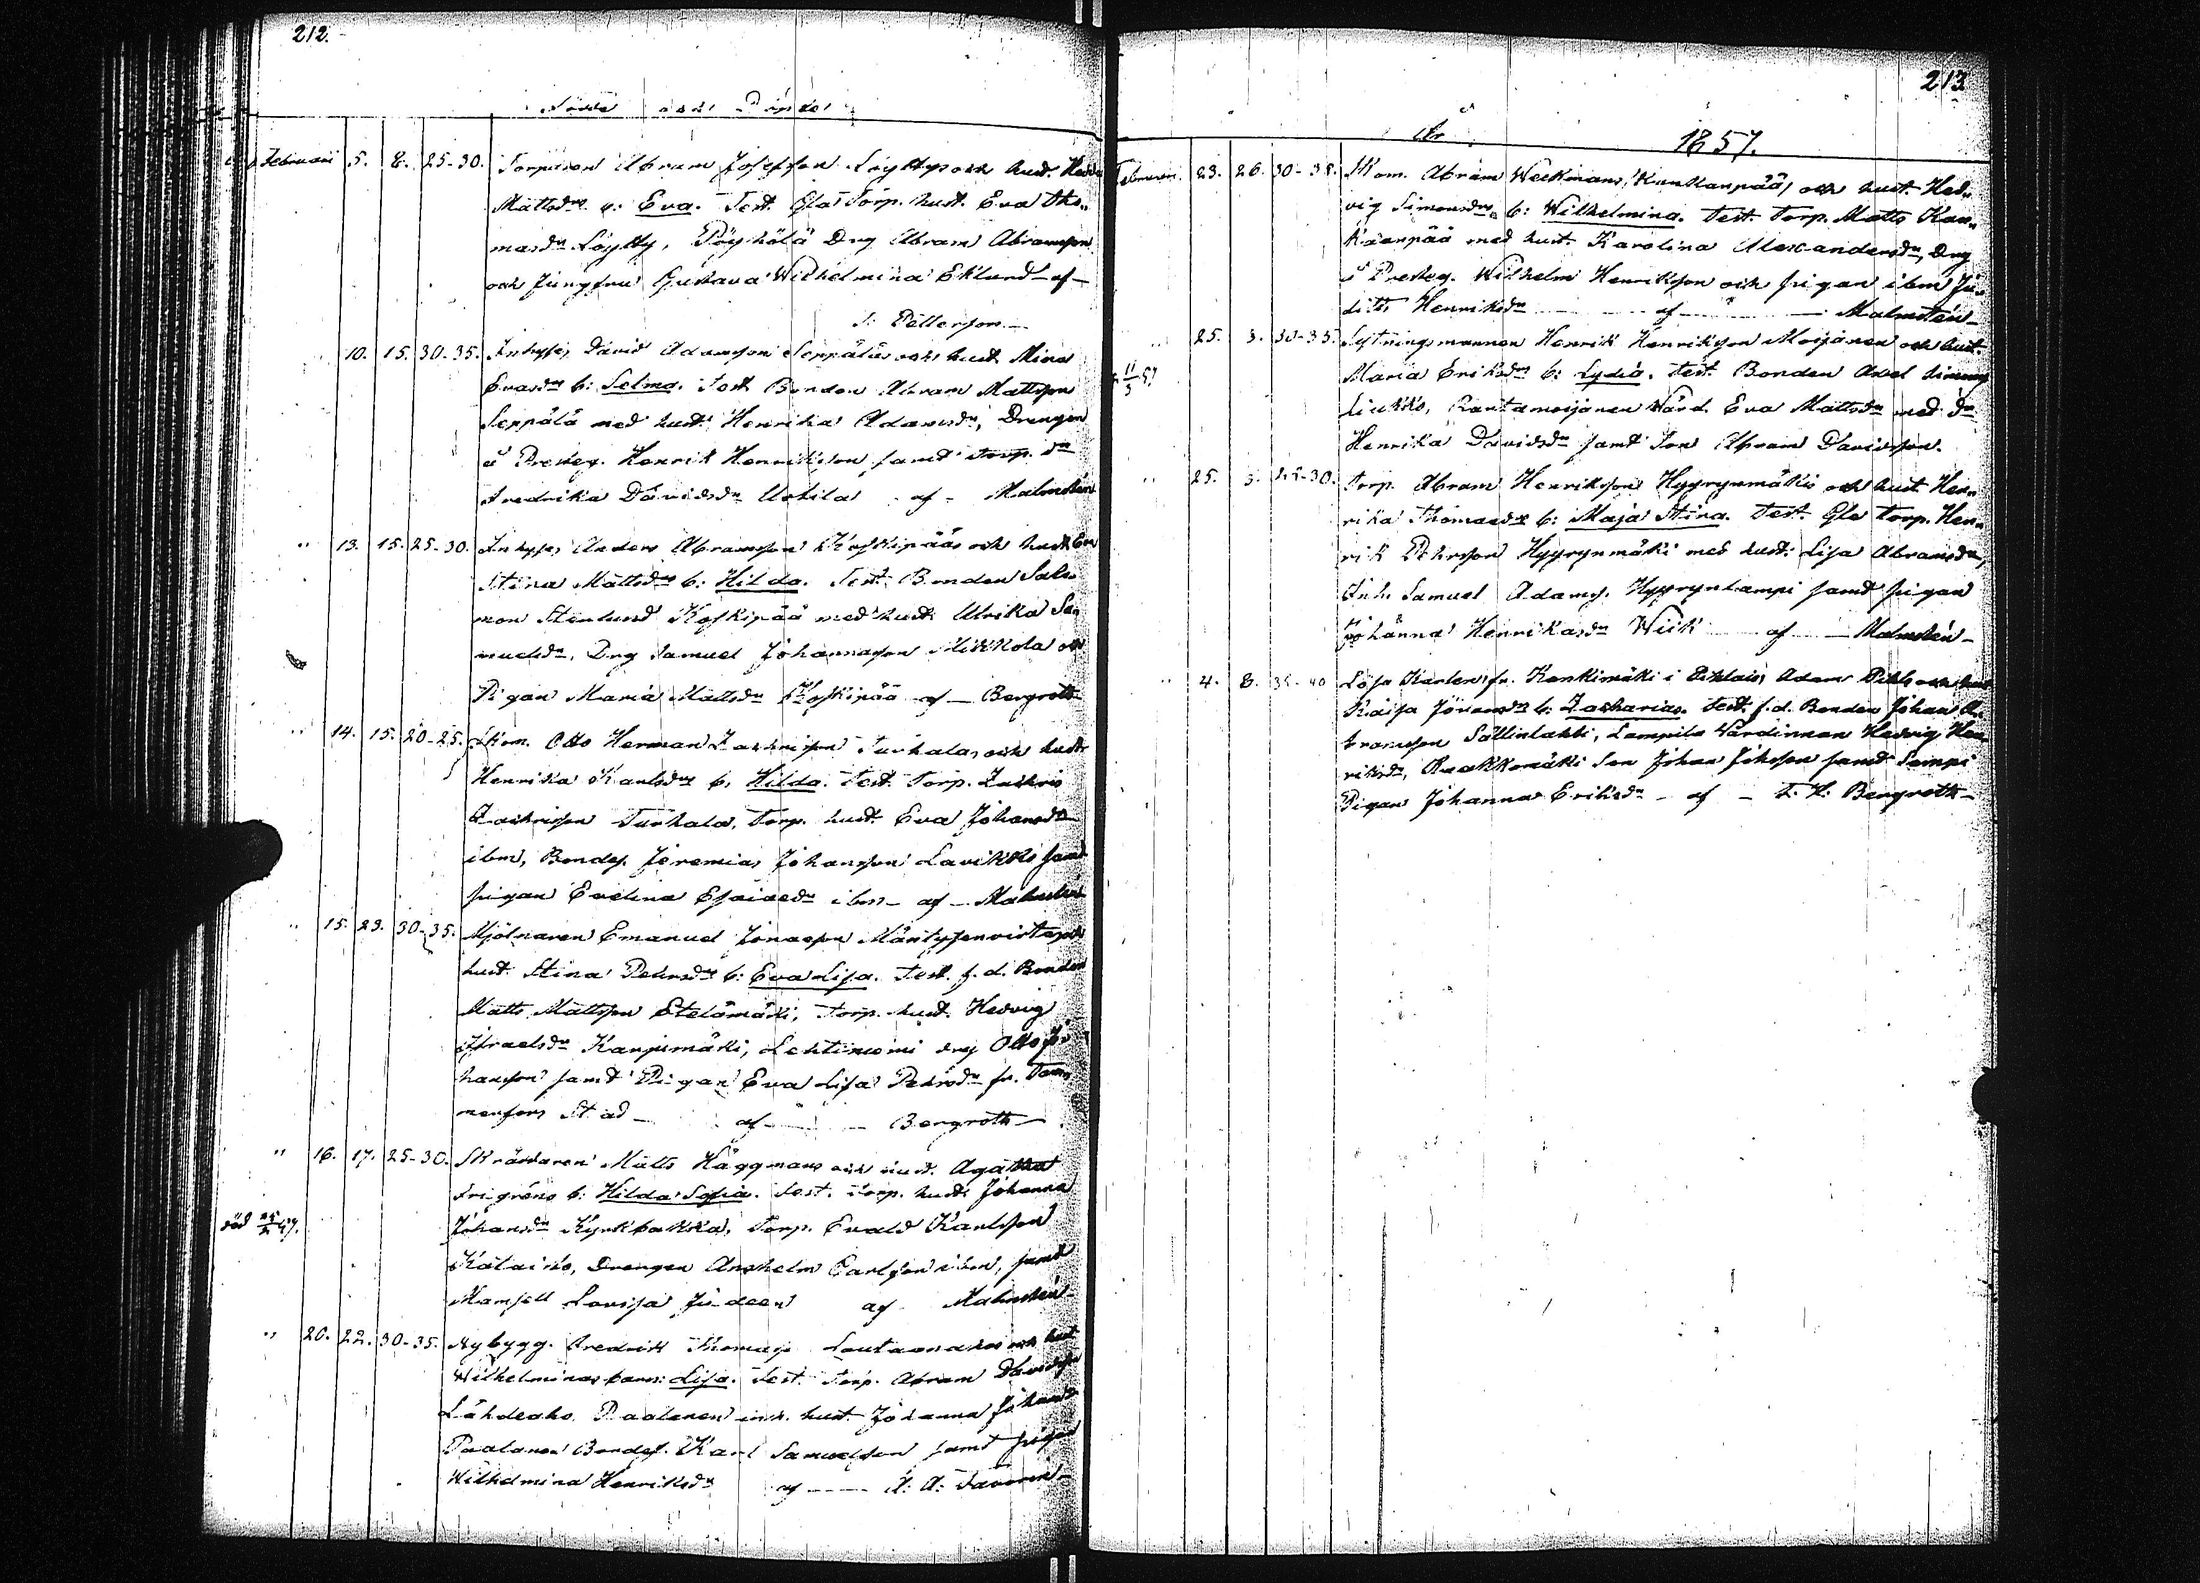 212.
Födde och Döpde
Februari 5. 8. 25-30. Torparen Abram Josefson Löyttys och hust.
Mattsdr b: Eva. Test. Gla Torp. hust. Eva Tho-
masdr Löytty, Pöyhölä Drg Abram Abramson
och Jungfru Gustava Wilhelmina Eklund - af -
Petterson -
" 10. 15. 30-35. Inhyses David Adamsson Seppäläs och hust. Mina
Evasdrs b: Selma. Test. Bonden Abram Mattsson
Seppälä med hust. Henrika Adamsdr, Drengen
å Presteg. Henrik Henriksson samt Torp. dr
Fredrika Davidsdr Uotila af - Malmstén
" 13. 15. 25-30. Inhyses Anders Abramsson Koskipääs och hust. Eva
Stina Mattsdrs b: Hilda. Test. Bonden Salo-
mon Stenlund Koskipää med hust. Ulrika Sa-
muelsdr, Drg Samuel Johannsson Mikkola och
Pigan Maria Mattsdr Koskipää - af - Bergroth
" 14. 15. 20-25. Skom. Otto Herman Zachrisson Turhalas och hust.
Henrika Karlsdrs b: Hilda. Test. Torp. Zachris
Zachrisson Turhala, Torp. hust. Eva Johansdr
ibm, Bondes. Jeremias Johansson Lavikko samt
pigan Evelina Esaiaedr ibm - af - Malmstén
" 15. 23. 30-35. Mjölnaren Emanuel Jonasson Mäntysenvirtas och
hust. Stina Pehrsdrs b: Eva Lisa. Test. f. d. Bonden
Matts Mattsson Etelämäki, Torp. hust. Hedvig
Israelsdr Kangismäki, Lehtiniemi drg Otto Jo-
hansson samt Pigan Eva Lisa Pehrsdr fr. Tam-
merfors Stad - af - Bergroth -
" 16. 17. 25-30. Skräddaren Matts Häggmans och hust. Agatha
Frigréns b: Hilda Sofia. Test. Torp. hust. Johanna
död 25/2 57. Johansdr Kynkbakka, Torp. Evald Karlsson
Kataisto, Drengen Anshelm Carlsson ibm, samt
Mamsell Lovisa Judeen af Malmstén
" 20. 22. 30-35. Nybygg. Fredrik Thomass. Lautaonahos och hust.
Wilhelminas barn: Lisa. Test. Torp. Abram Davidsson
Lähdeaho, Paalanen inh. hust. Johanna Johansdr
Paalanen Bondes. Karl Samuelsson samt pigan
Wilhelmina Henriksdr af - A: A: Favorin -
213
År 1857.
Februari 23. 26. 30-35. Skom. Abram Weckmans, Kunkanpää, och hust. Hed-
vig Simonsdrs b: Wilhelmina. Test. Torp. Matts Kan-
kaanpää med hust. Karolina Alexandersdr, Drg
å Presteg. Wilhelm Henriksson och pigan ibm Ju-
dith Henriksdr af - Malmstén -
" 25. 3. 30-35. Sytningsmannen Henrik Henriksson Moijanen och hust.
11/3 57 Maria Eriksdrs b: Lydia. Test. Bonden Axel
Liukko, Rantamoijanen Värd. Eva Mattsdr med dr
Henrika Davidsdr samt Son Abram Davidsson.
" 25. 3. 25-30. Torp. Abram Henriksson Hyyrynmäkis och hust. Hen-
rika Thomasdrs b: Maja Stina. Test. Gla Torp. Hen-
rik Pehrsson Hyyrynmäki med hust. Lisa Abramsdr,
Inh. Samuel Adams. Hyyrynlampi samt pigan
Johanna Henriksdr Wiik af - Malmstén -
" 4. 8. 35-40 Lösa Karlen fr. Kankimäki i Eiklais, Adam och hust.
Kaisa Jöransdrs b: Zacharias. Test. f.d. Bonden Johan A-
bramsson Sällinlahti, Lampila Värdinnan Hedvig Hen-
riksdr, Raakkomäki Son Johan Johsson samt Sompi
Pigan Johanna Eriksdr - af - Bergroth -